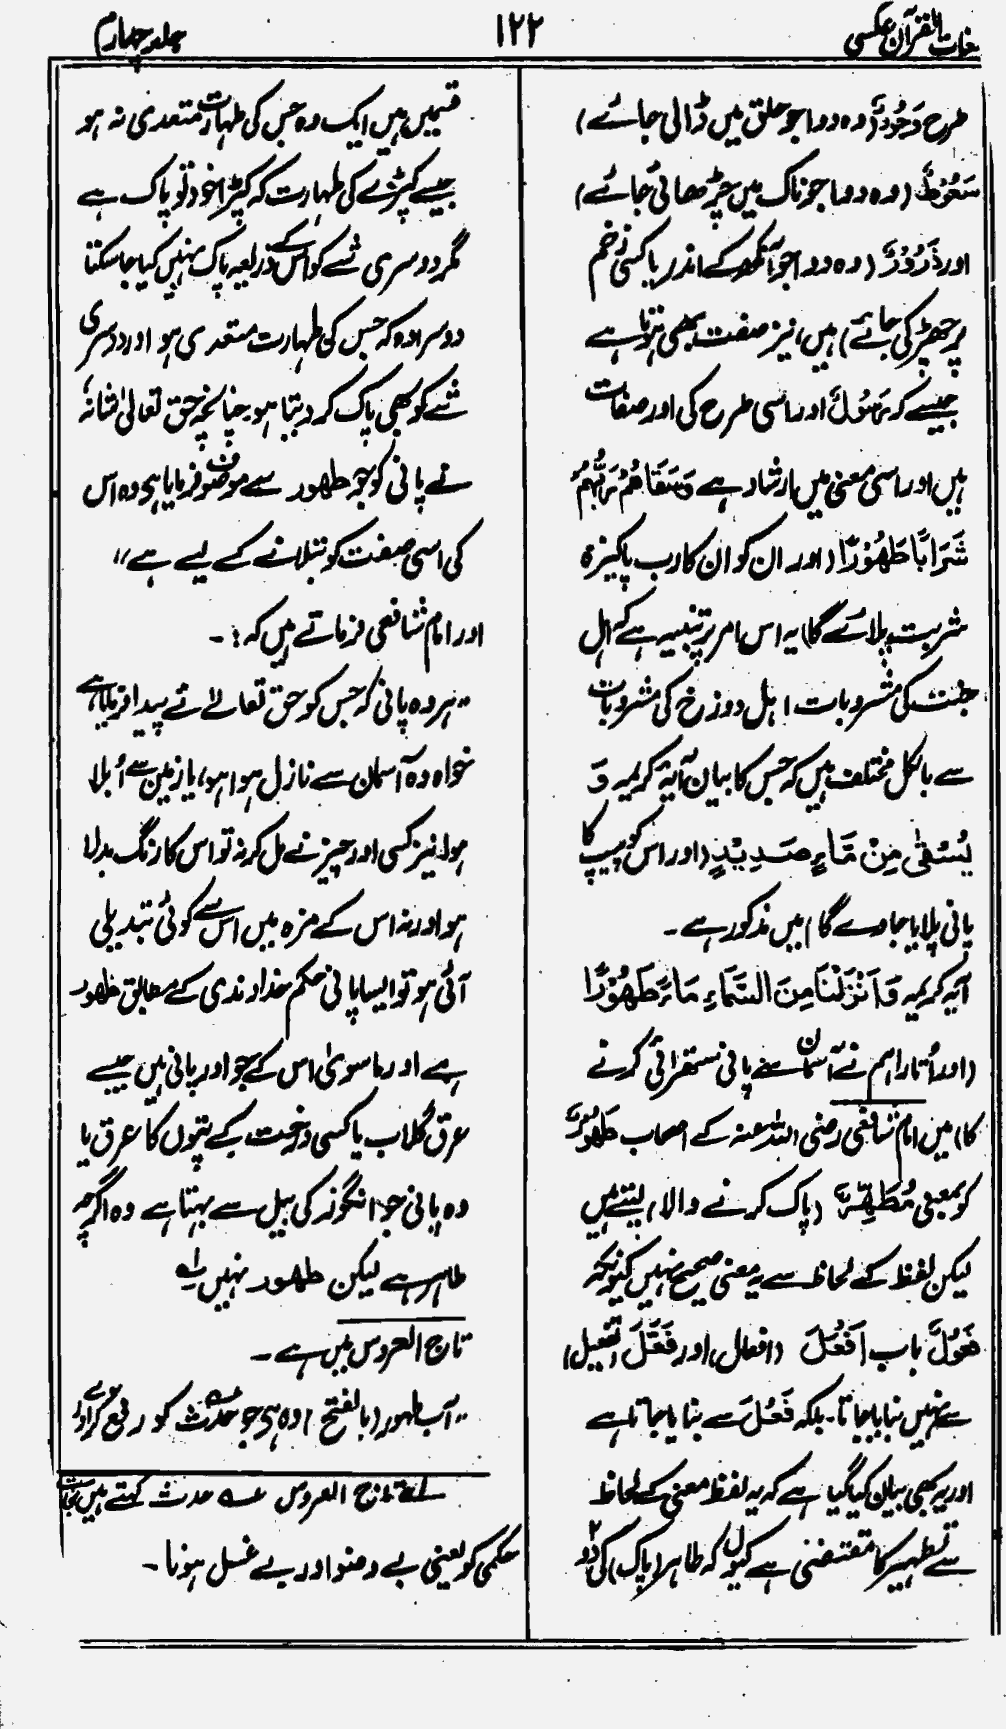 لغات القرآن عکسی
۱۲۲
جلد چہارم
طرح وَجُوْرٌ (وہ دوا جو حلق میں ڈالی جائے)
سَعُوْطٌ (وہ دوا جو ناک میں چڑھائی جائے)
اور ذَرُوْرٌ (وہ دوا جو آنکھ کے اندر یا کسی زخم
پر چھڑکی جائے) ہیں، نیز صفت بھی ہوتا ہے
جیسے کہ رَسُوْلٌ اور اسی طرح کی اور صفات
ہیں اور اسی معنی میں ارشاد ہے وَسَقَاهُمْ رَبُّهُمْ
شَرَابًا طَهُوْرًا (اور ان کو ان کا رب پاکیزہ
شربت پلائے گا) یہ اس امر پر تنبیہ ہے کہ اہل
جنت کی مشروبات، اہل دوزخ کی مشروبات
سے بالکل مختلف ہیں کہ جس کا بیان آیۂ کریمہ وَ
يُسْقٰى مِنْ مَّاءٍ صَدِيْدٍ (اور اس کو پیپ کا
پانی پلایا جاوے گا) میں مذکور ہے۔
آیۂ کریمہ وَاَنْزَلْنَا مِنَ السَّمَاءِ مَاءً طَهُوْرًا
(اور اُتارا ہم نے آسمان سے پانی ستھرائی کرنے
کا) میں امام شافعی رضی اللہ عنہ کے اصحاب طَهُوْرٌ
کو بمعنی مُطَهِّرٌ (پاک کرنے والا) لیتے ہیں
لیکن لفظ کے لحاظ سے یہ معنی صحیح نہیں کیونکہ
فَعُوْلٌ باب اَفْعَلَ (افعال) اور فَعَّلَ (تفعیل)
سے نہیں بنایا جاتا۔ بلکہ فَعُلَ سے بنایا جاتا ہے
اور یہ بھی بیان کیا گیا ہے کہ یہ لفظ معنی کے لحاظ
سے تطہیر کا مقتضی ہے کیوں کہ طاہر (پاک) کی دو
قسمیں ہیں ایک وہ جس کی طہارت متعدی نہ ہو
جیسے کپڑے کی طہارت کہ کپڑا خود تو پاک ہے
مگر دوسری شے کو اس کے ذریعہ پاک نہیں کیا جا سکتا
دوسرا وہ کہ جس کی طہارت متعدی ہو اور دوسری
شے کو بھی پاک کر دیتا ہو۔ چنانچہ حق تعالیٰ شانہٗ
نے پانی کو جو طہور سے موصوف فرمایا ہی وہ اس
کی اسی صفت کو بتلانے کے لیے ہے،،
اور امام شافعی فرماتے ہیں کہ:۔
”ہر وہ پانی کہ جس کو حق تعالےٰ نے پیدا فرمایا ہے
خواہ وہ آسمان سے نازل ہوا ہو، یا زمین سے اُبلا
ہو۔ نیز کسی اور چیز نے مل کر نہ تو اس کا رنگ بدلا
ہو اور نہ اس کے مزہ میں اس سے کوئی تبدیلی
آئی ہو تو ایسا پانی حکم خداوندی کے مطابق طہور
ہے اور ماسویٰ اس کے جو اور پانی ہیں جیسے
عرق گلاب یا کسی درخت کے پتوں کا عرق یا
وہ پانی جو انگور کی بیل سے بہتا ہے وہ اگرچہ
طاہر ہے لیکن طہور نہیں لہ
تاج العروس میں ہے۔
”آب طہور (بالفتح) وہ ہی جو حدث عہ کو رفع کرے اور
لہ تاج العروس عہ حدث کہتے ہیں نجاست
حکمی کو یعنی بے وضو اور بے غسل ہونا۔